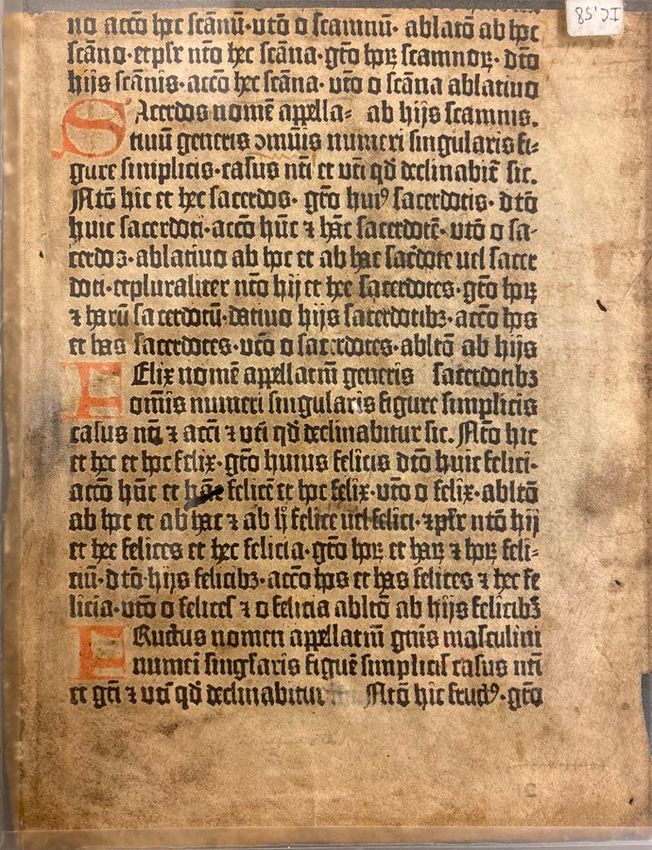 IC.58
no accō hoc scānū·vtō o scamnū· ablatō ab hoc
scāno·et pſr ntō hec scāna·gtō hoꝝ scamnoꝝ· dtō
hijs scānis·accō hec scāna· vtō o scāna ablatiuo
SAcerdos nomē appella⸗ ab hijs scamnis.
tiuū generis ↄmūis numeri singularis fi⸗
gure simplicis·casus nti et vti qđ declinabit̄ sic.
Ntō hic et hec sacerdos· gtō huiꝰ sacerdotis· dtō
huic sacerdoti·accō hūc ꝛ hāc sacerdotē·vtō o sa⸗
cerdos·ablatiuo ab hoc et ab hac sac̄dote uel sacer
doti·et pluraliter ntō hij et hec sacerdotes·gtō hoꝝ
ꝛ harū sacerdotū·datiuo hijs sacerdotibꝫ·accō hos
et has sacerdotes·vtō o sacerdotes·abltō ab hijs
FElix nomē appellatiū generis sacerdotibꝫ
omīs numeri singularis figure simplicis
casus nti ꝛ acci ꝛ vti qđ declinabitur sic. Ntō hic
et hec et hoc felix·gtō huius felicis dtō huic felici·
accō hūc et hāc felicē et hoc felix·vtō o felix·abltō
ab hoc et ab hac ꝛ ab h felice uel felici·ꝛ pſr ntō hij
et hec felices et hec felicia·gtō hoꝝ et haꝝ ꝛ hoꝝ feli⸗
ciū·dtō hijs felicibꝫ·accō hos et has felices ꝛ hec fe
licia·vtō o felices ꝛ o felicia abltō ab hijs felicibꝫ
FRuctus nomen appellatiū gnis masculini
numei singlaris figuē simplicis casus nti
et gti ꝛ vti qđ declinabitur Ntō hic fructꝰ·gtō